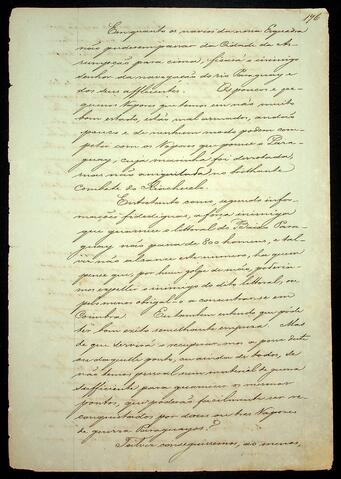 196
Emquanto os navios da nossa Esquadra
não poderem passar da Cidade da As-
sumpção para cima, ficará o inimigo
senhor da navegação do rio Paraguay e
dos seus affluentes. Os poucos e pe-
quenos Vapores que temos em não muito
bom estado, estão mal armados, andão
pouco e de nenhum modo podem com-
petir com os Vapores que possue o Para-
guay, cuja marinha foi derrotada,
mas não aniquilada no brilhante
combate do Riachuelo.
Entretanto como, segundo infor-
mações fidedignas, a força inimiga
que guarnece o littoral do Baixo Para-
guay não passa de 800 homens, e tal-
vez não alcance este numero, ha quem
pense que, por hum golpe de mão, poderia-
mos expellir o inimigo do dito littoral, ou
pelo menos obrigal-o a concentrar-se em
Coimbra. Eu tambem entendo que pode
ter bom exito semelhante empresa. Mas
de que servirá o recuperar-mos a posse deste
ou daquelle ponto, ou ainda de todos, se
não temos pessoal nem material de guerra
sufficiente para guarnecer os mesmos
pontos, que poderão facilmente ser re-
conquistados por dous ou tres Vapores
de guerra Paraguayos?
Talvez conseguiremos, ao menos,